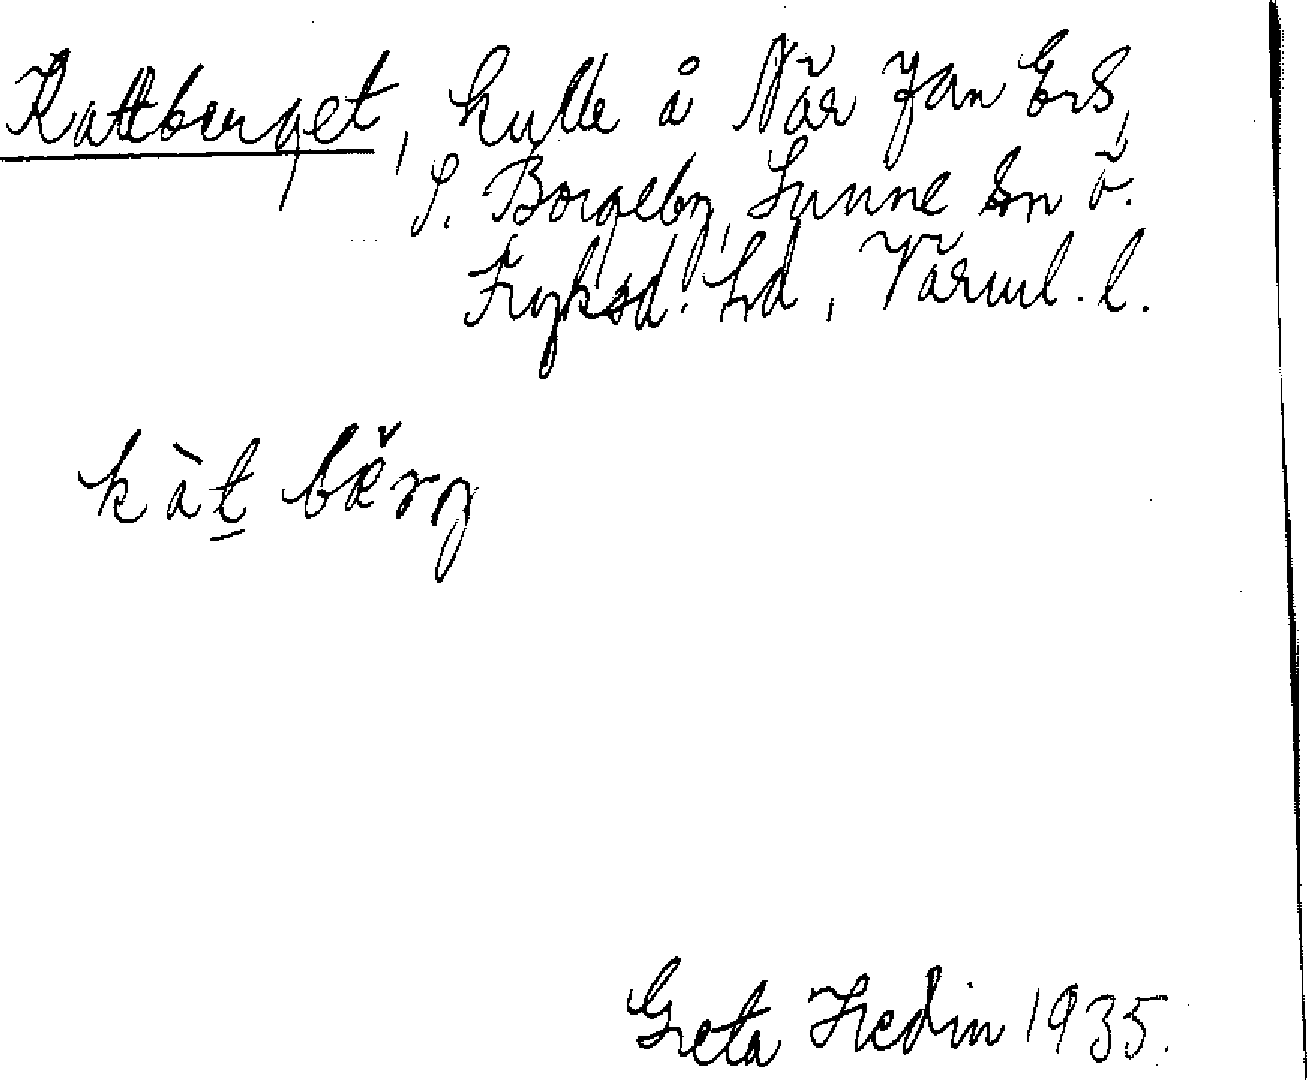 Kattberget, kulle å När Jan Ers,
S. Borgeby, Sunne sn ö.
Fryksd. hd, Värml. l.
kàt̲ bæ̆rg
Greta Hedin 1935.